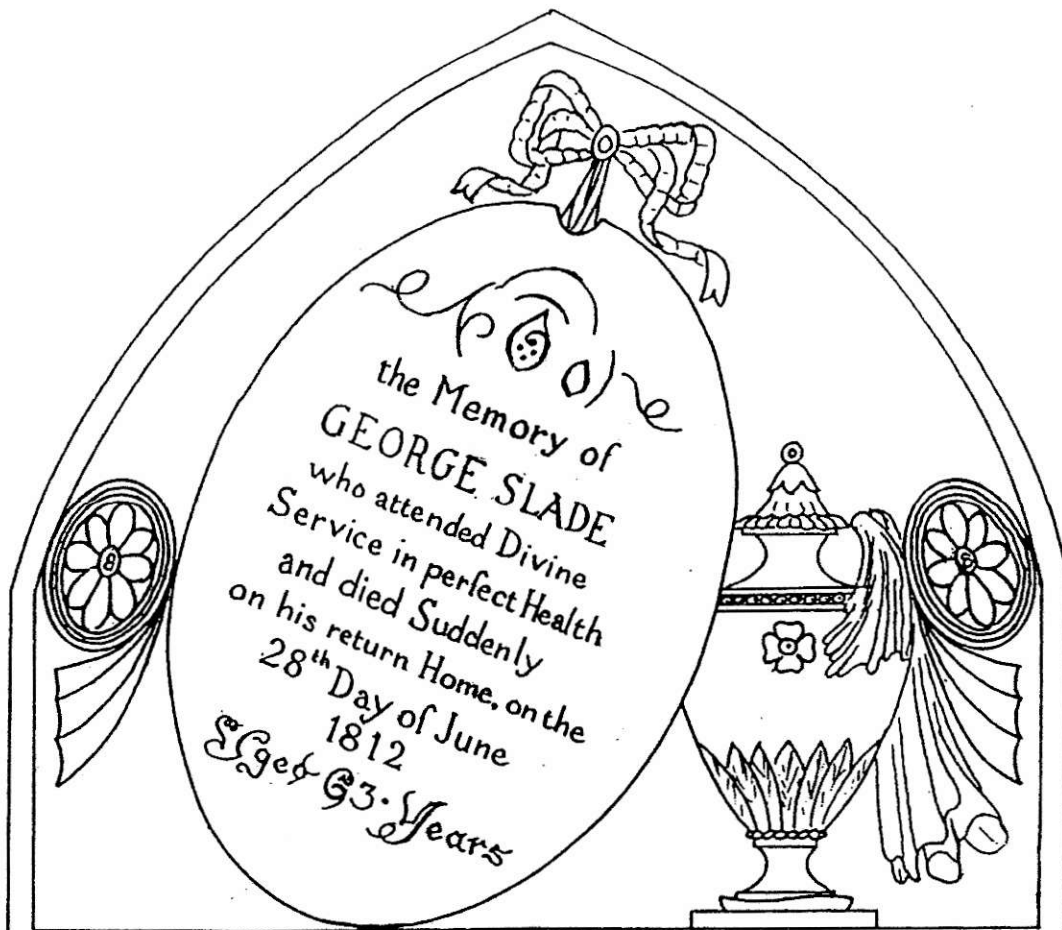 the Memory of
GEORGE SLADE
who attended Divine
Service in perfect Health
and died Suddenly
on his return Home, on the
28th Day of June
1812
Aged 63 · Years